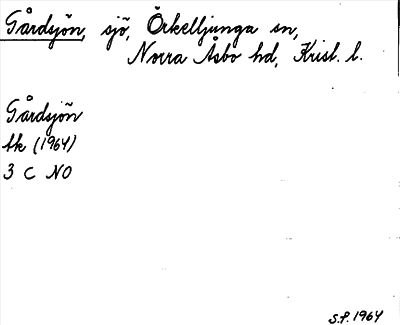 Gårdsjön, sjö, Örkelljunga sn,
Norra Åsbo hd, Krist. l.
Gårdsjön
tk (1964)
3 C NO
S.F. 1964